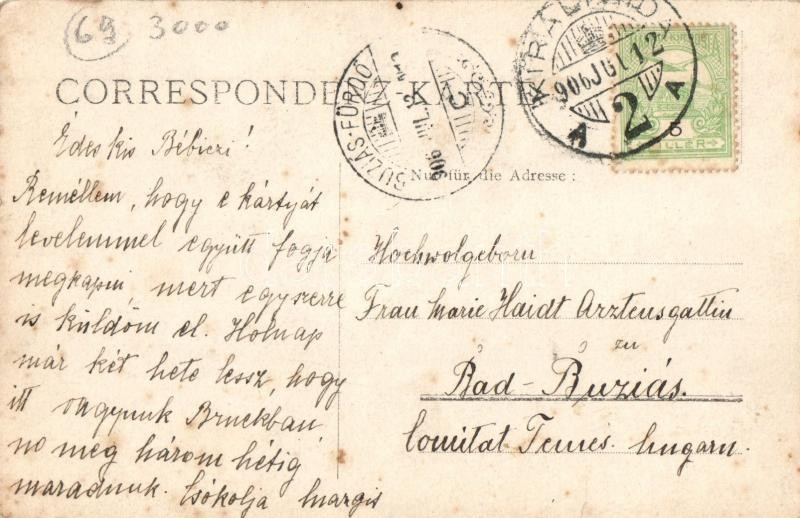 69 3000
CORRESPONDENZ-KARTE
KIRÁLYHIDA
906 JUL 12
2
A A
BUZIÁS-FÜRDŐ
906 JUL.
6
FILLÉR
Nur für die Adresse:
Édes kis Bébiczi!
Reméllem, hogy e kártyát
levelemmel együtt fogja
megkapni, mert egyszerre
is küldöm el. Holnap
már két hete lessz, hogy
itt vagyunk Bruckban
no meg három hétig
maradunk. Csókolja Margit
Hochwolgeborn
Frau Marie Haidt Arztensgattin
zu
Bad-Buziás.
Comitat Temes. Ungarn.